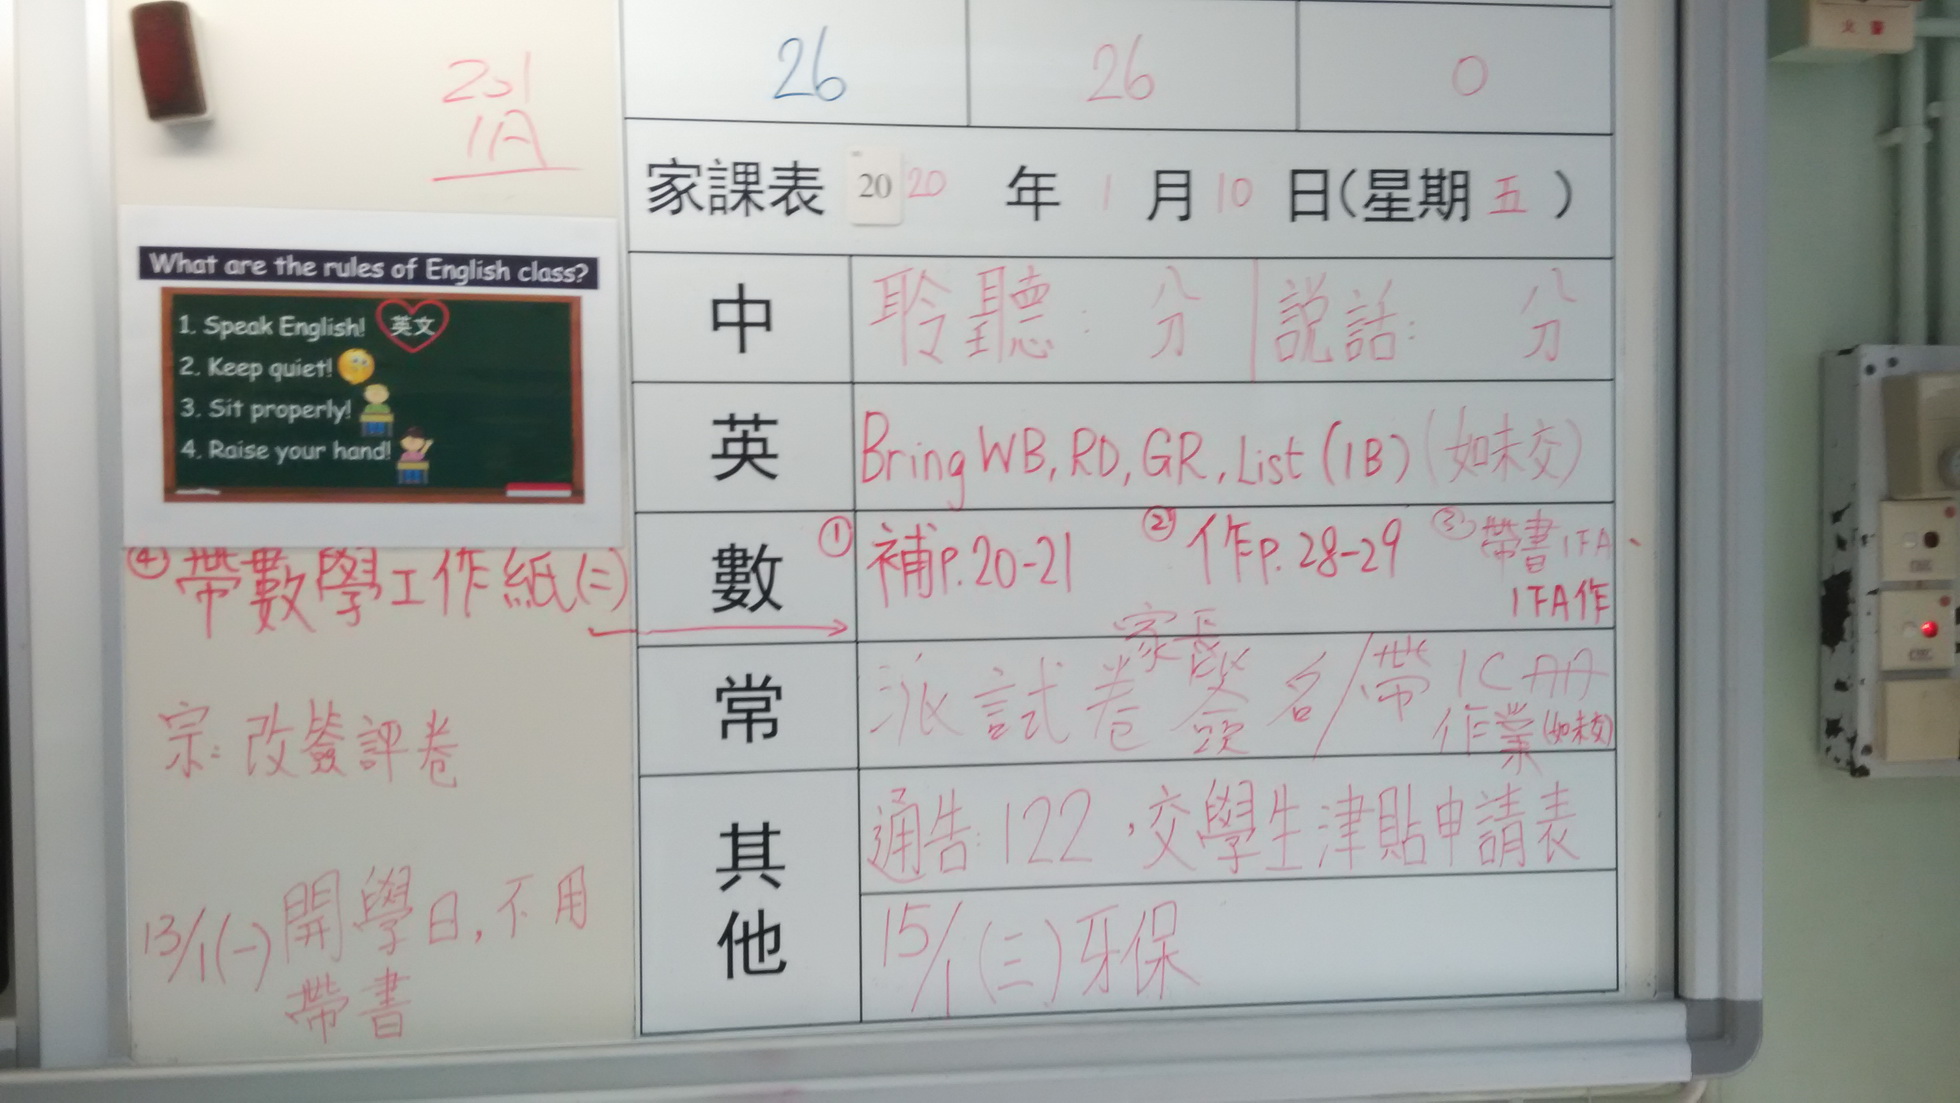 201
1A
26 26 0
家課表 2020 年 1 月 10 日(星期 五 )
What are the rules of English class?
1. Speak English! 英文
2. Keep quiet!
3. Sit properly!
4. Raise your hand!
中 聆聽: 分 | 説話: 分
英 Bring WB, RD, GR, List (1B) (如未交)
數 ① 補p.20-21 ② 作p.28-29 ③ 帶書1FA、
1FA作
④ 帶數學工作紙(二)
常 派試卷家長簽名/帶1C
作業(如未交)
宗: 改簽評卷
其他 通告: 122, 交學生津貼申請表
15/1 (三) 牙保
13/1(一) 開學日, 不用
帶書
火警